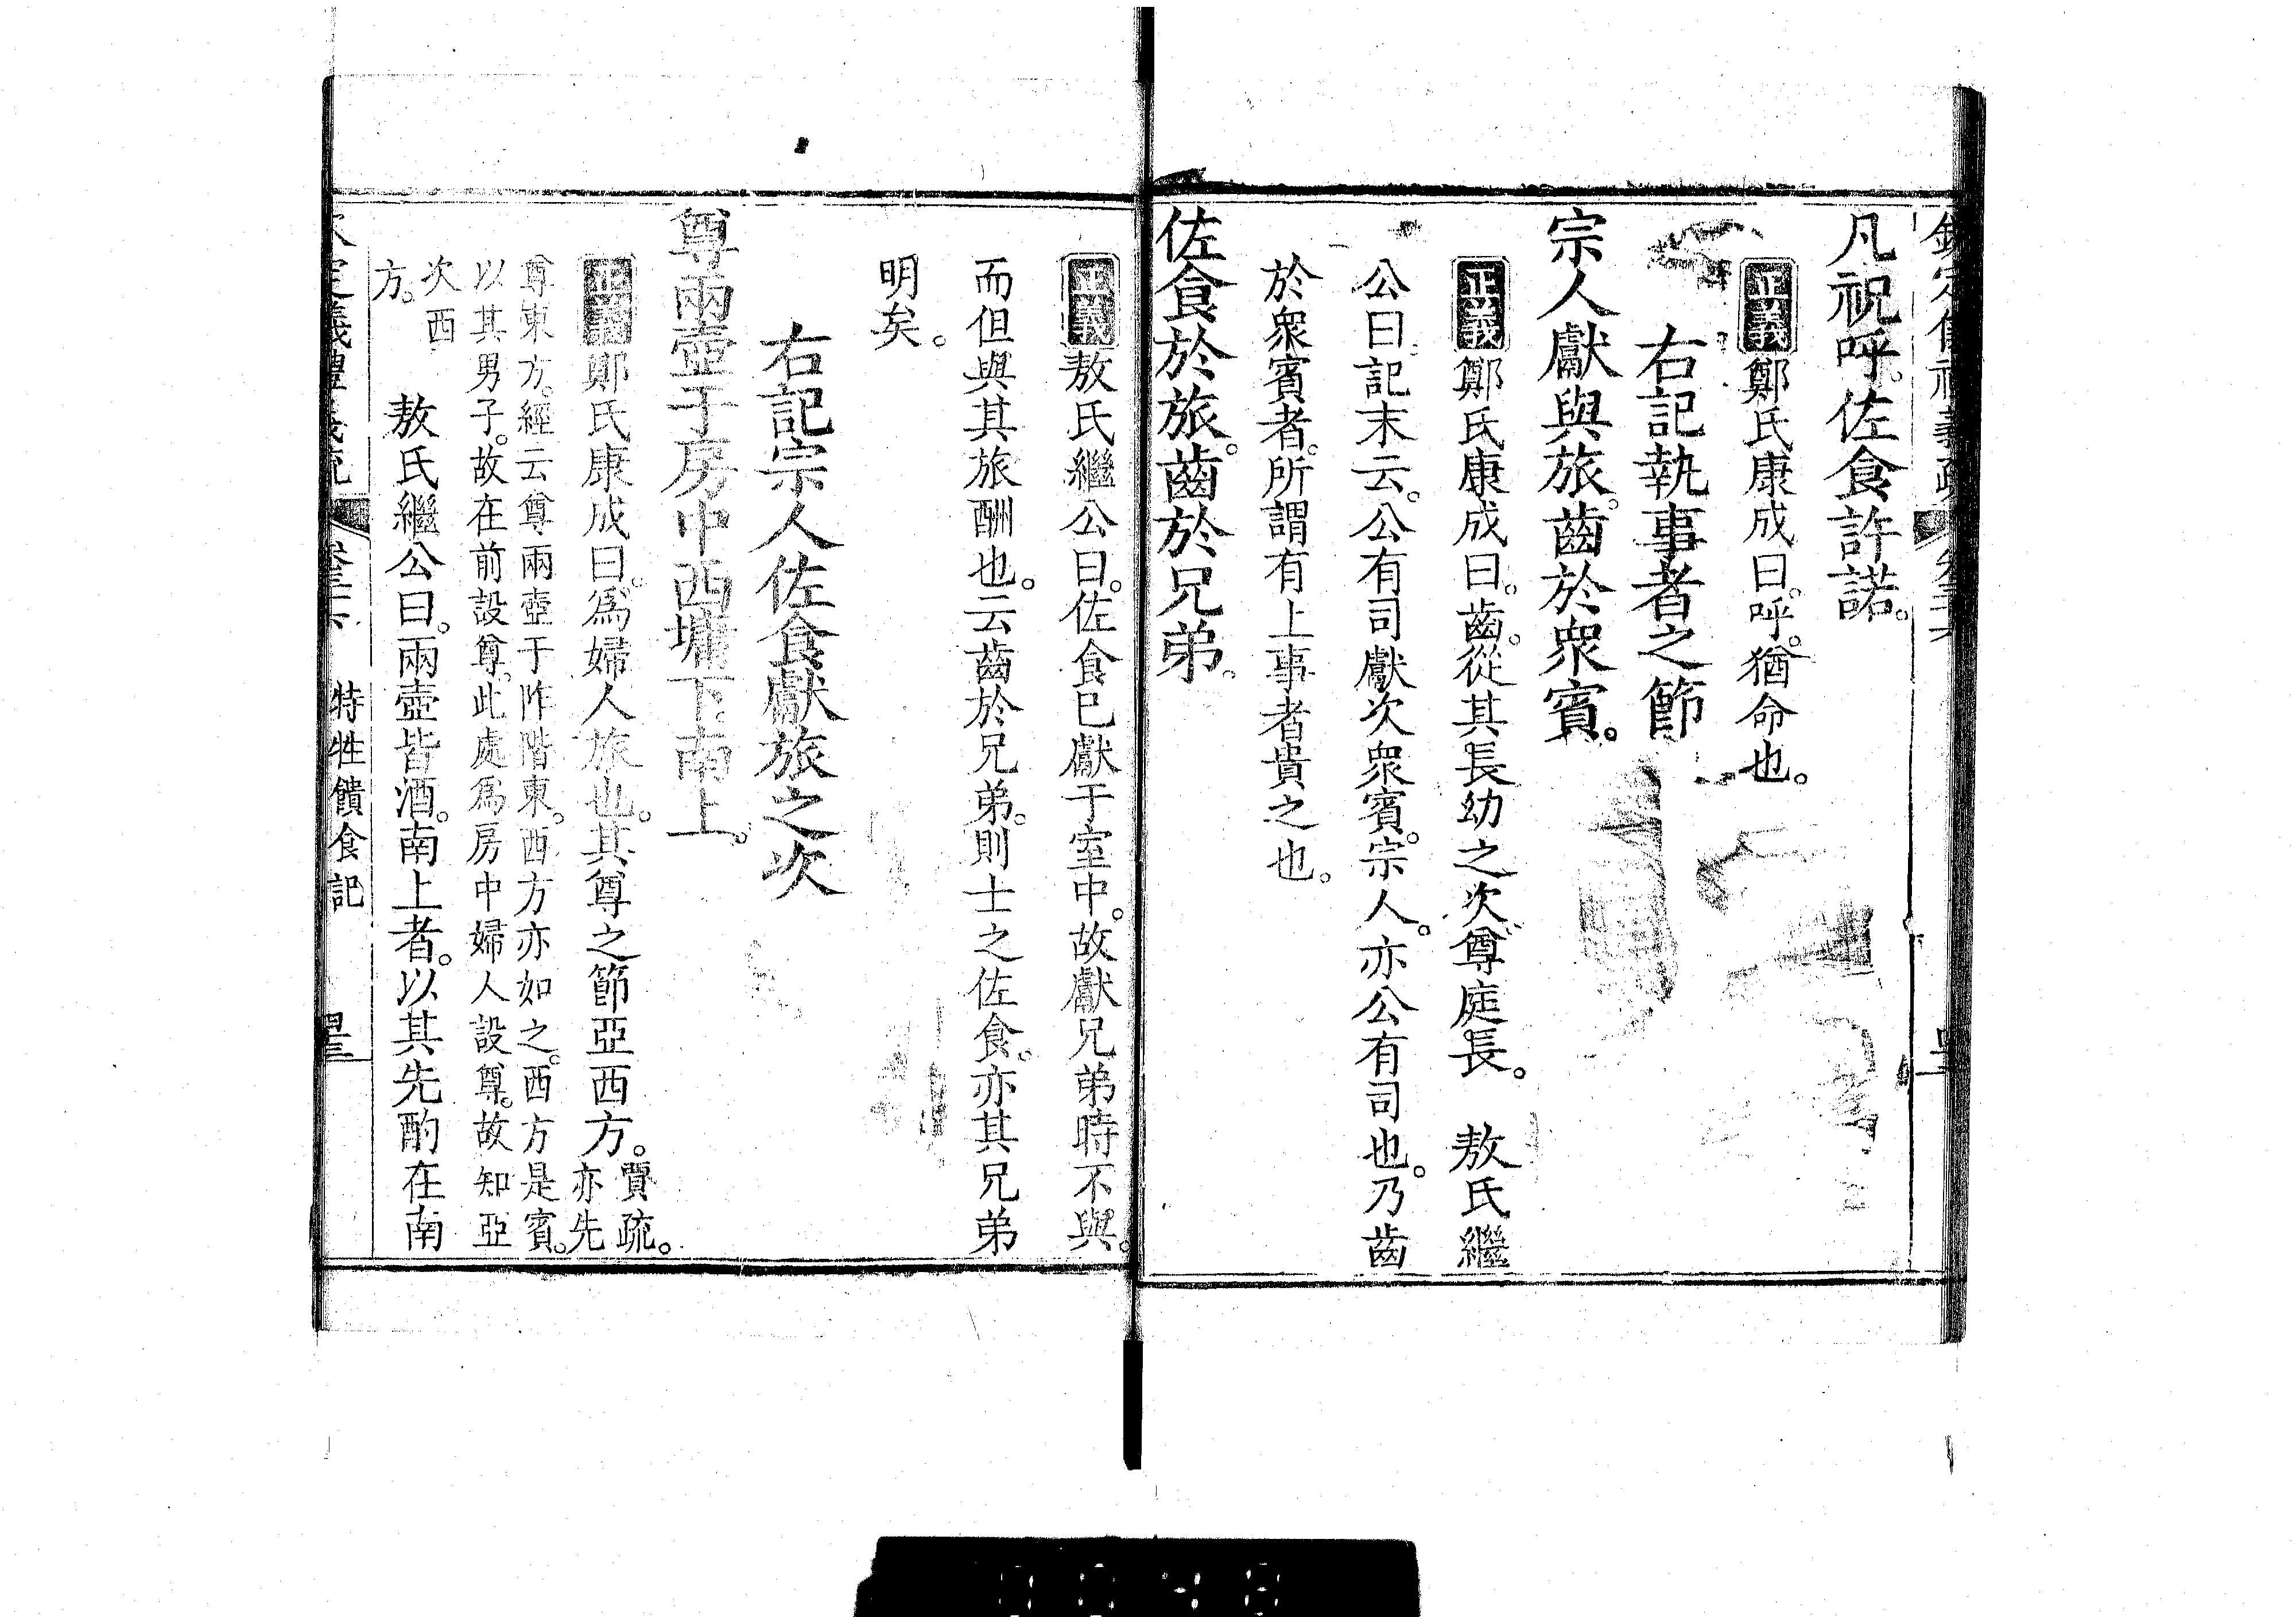 凡祝呼。佐食許諾。
正義鄭氏康成曰。呼。猶命也。
右記執事者之節
宗人獻與旅。齒於衆賓。
正義鄭氏康成曰。齒。從其長幼之次。尊庭長。　敖氏繼
公曰。記末云。公有司獻次衆賓。宗人。亦公有司也。乃齒
於衆賓者。所謂有上事者貴之也。
佐食於旅。齒於兄弟。
正義敖氏繼公曰。佐食已獻于室中。故獻兄弟時不與。
而但與其旅酬也。云齒於兄弟。則士之佐食。亦其兄弟
明矣。
右記宗人佐食獻旅之次
尊兩壺于房中西墉下。南上。
正義鄭氏康成曰。爲婦人旅也。其尊之節亞西方。賈疏。
亦先
尊東方。經云尊兩壺于阼階東。西方亦如之。西方是賓。
以其男子。故在前設尊。此處爲房中婦人設尊。故知亞
次西
方。　敖氏繼公曰。兩壺皆酒。南上者。以其先酌在南
定儀禮義疏　特牲饋食記